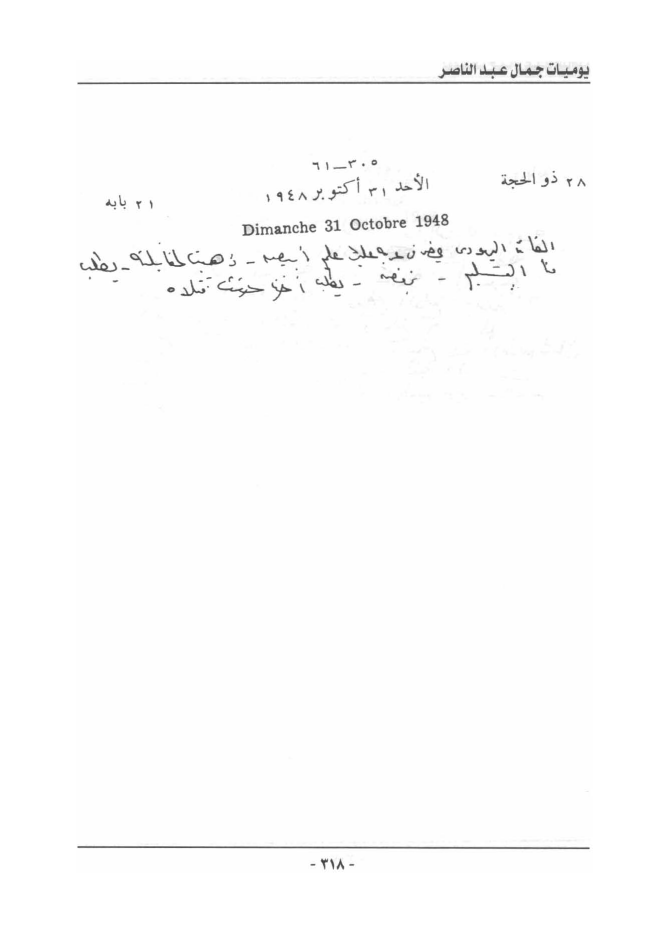 يوميات جمال عبد الناصر
٣٠٥—٦١
٢٨ ذو الحجة
الأحد ٣١ أكتوبر ١٩٤٨
٢١ بابه
Dimanche 31 Octobre 1948
القائد اليهودى يحضر فى عربة عليها علم أبيض - ذهبت لمقابلته - يطلب
منا التسليم - نرفض - يطلب أخذ جثث قتلاه
- ٣١٨ -